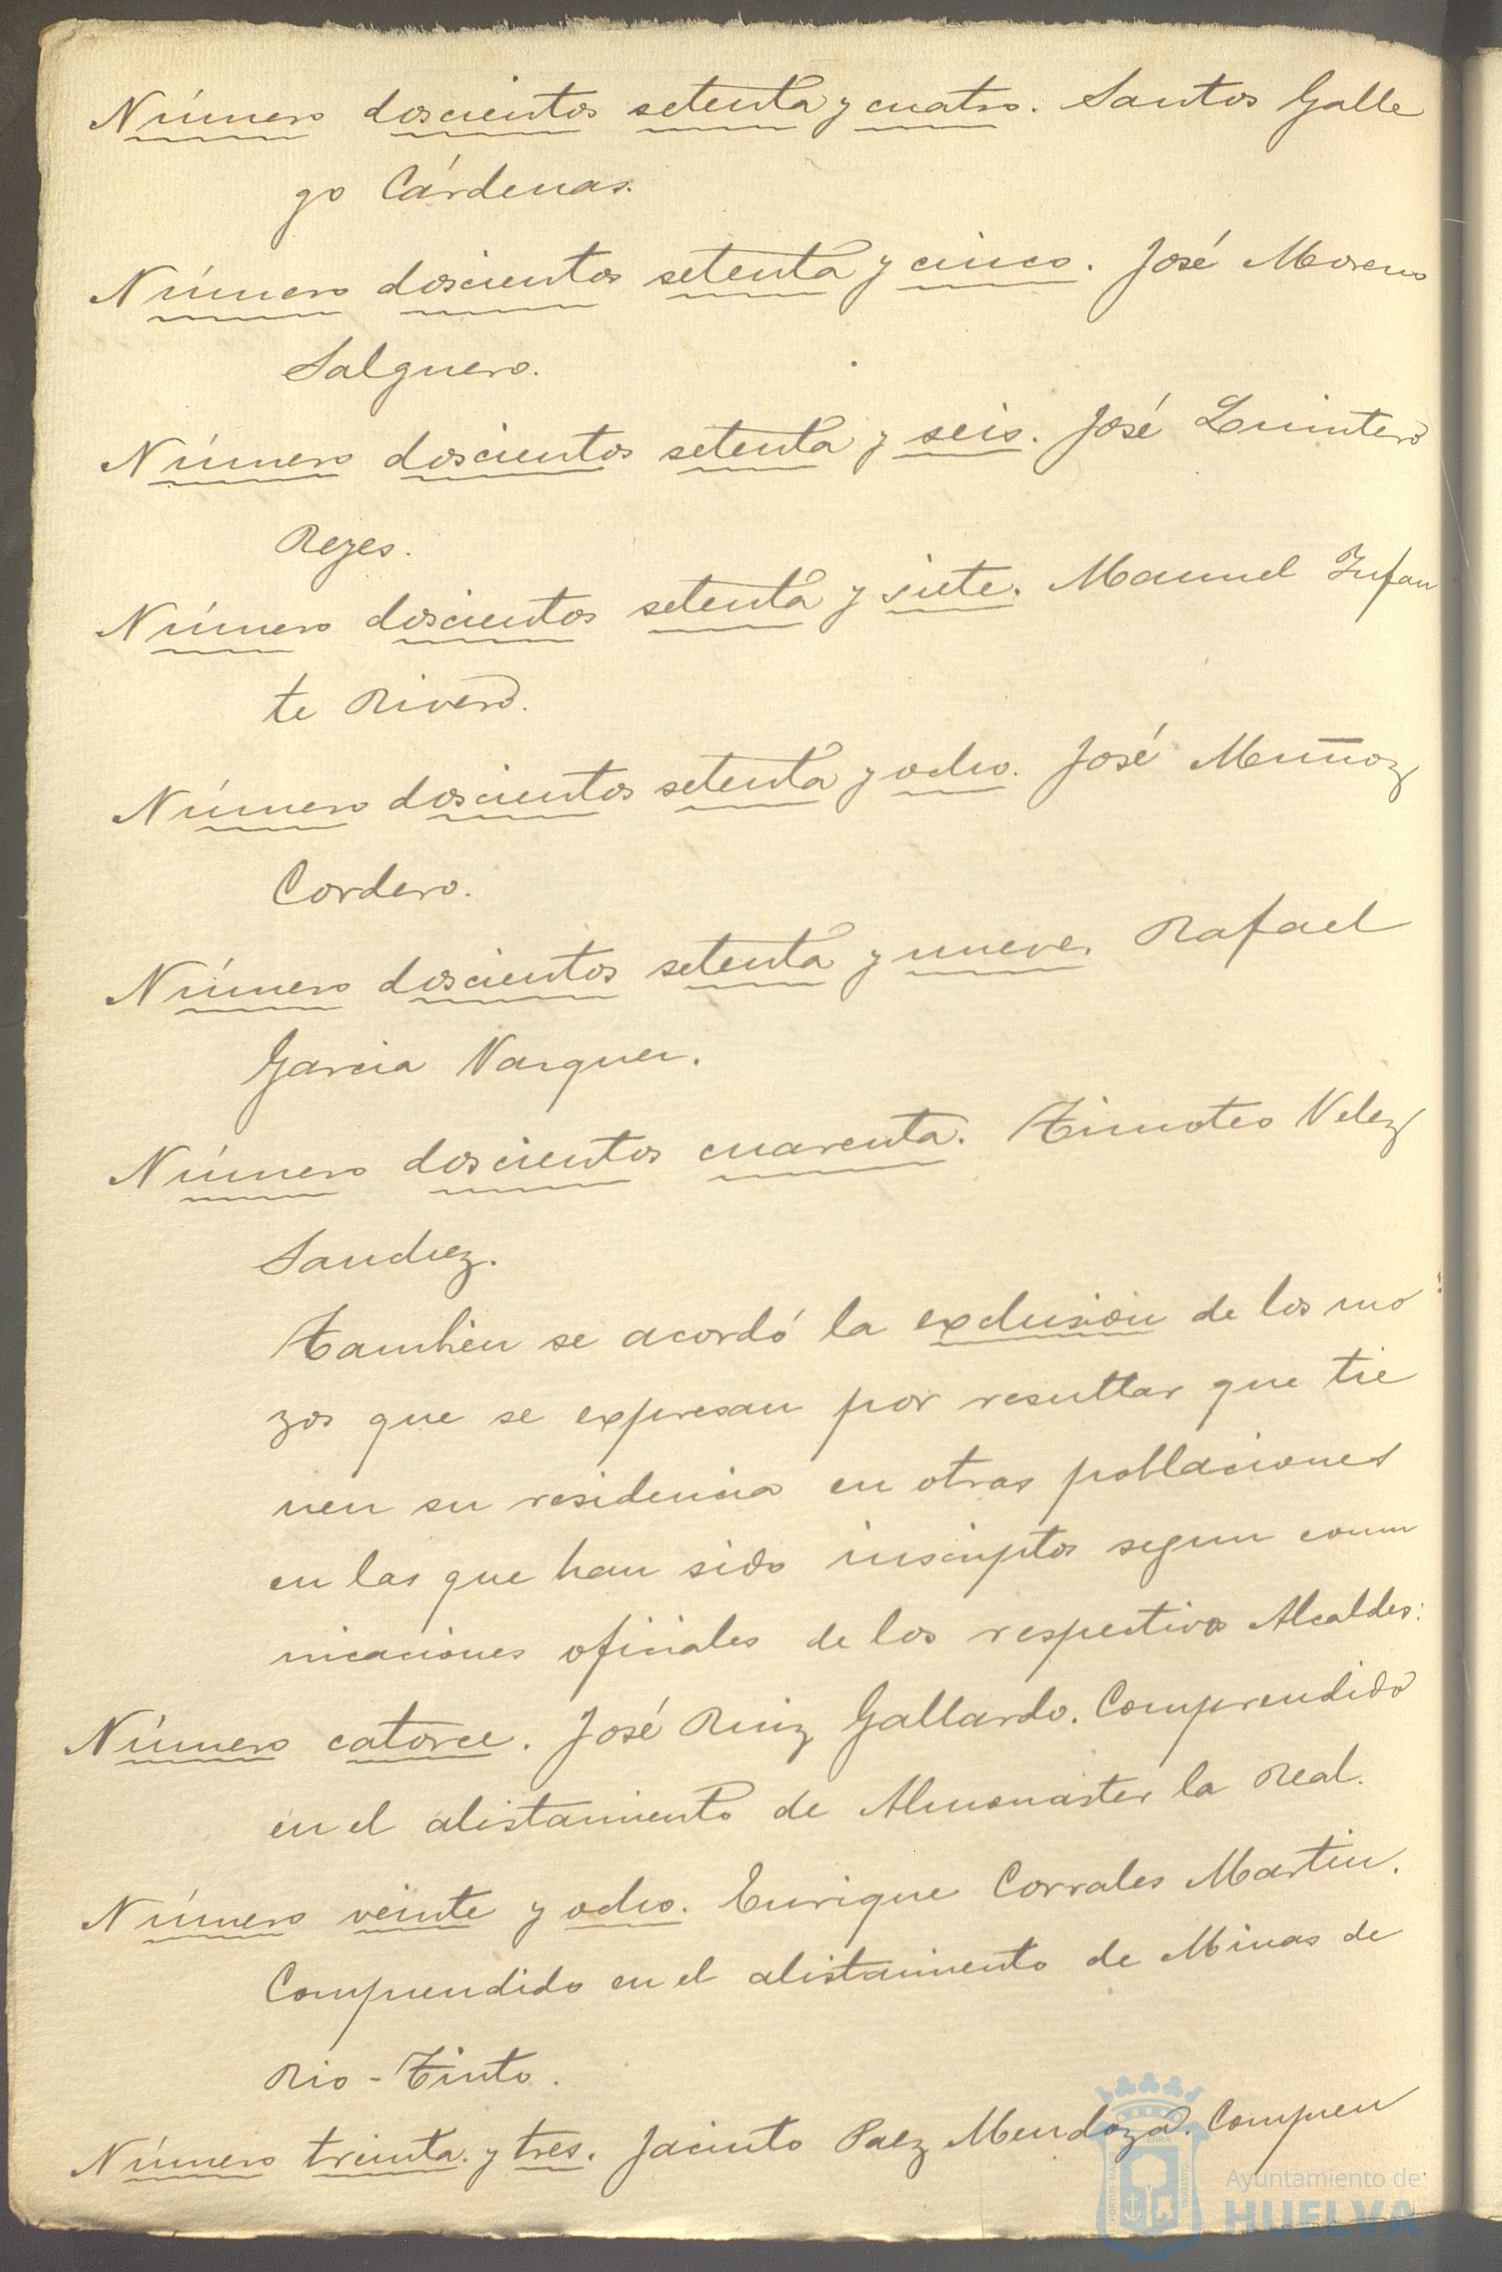 Número doscientos setenta y cuatro. Santos Galle
go Cárdenas.
Número doscientos setenta y cinco. José Moreno
Salguero.
Número doscientos setenta y seis. José Quintero
Reyes.
Número doscientos setenta y siete. Manuel Infan
te Rivero.
Número doscientos setenta y ocho. José Muñoz
Cordero.
Número doscientos setenta y nueve. Rafael
Garcia Vazquez.
Número doscientos cuarenta. Timoteo Velez
Sanchez.
Tambien se acordó la exclusión de los mo
zos que se expresan por resultar que tie
nen su residencia en otras poblaciones
en las que han sido inscriptos segun comu
nicaciones oficiales de los respectivos Alcaldes:
Número catorce. José Ruiz Gallardo. Comprendido
en el alistamiento de Almonaster la Real.
Número veinte y ocho. Enrique Corrales Martin.
Comprendido en el alistamiento de Minas de
Rio-Tinto.
Número treinta y tres. Jacinto Paez Mendoza. Compren
Ayuntamiento de
HUELVA